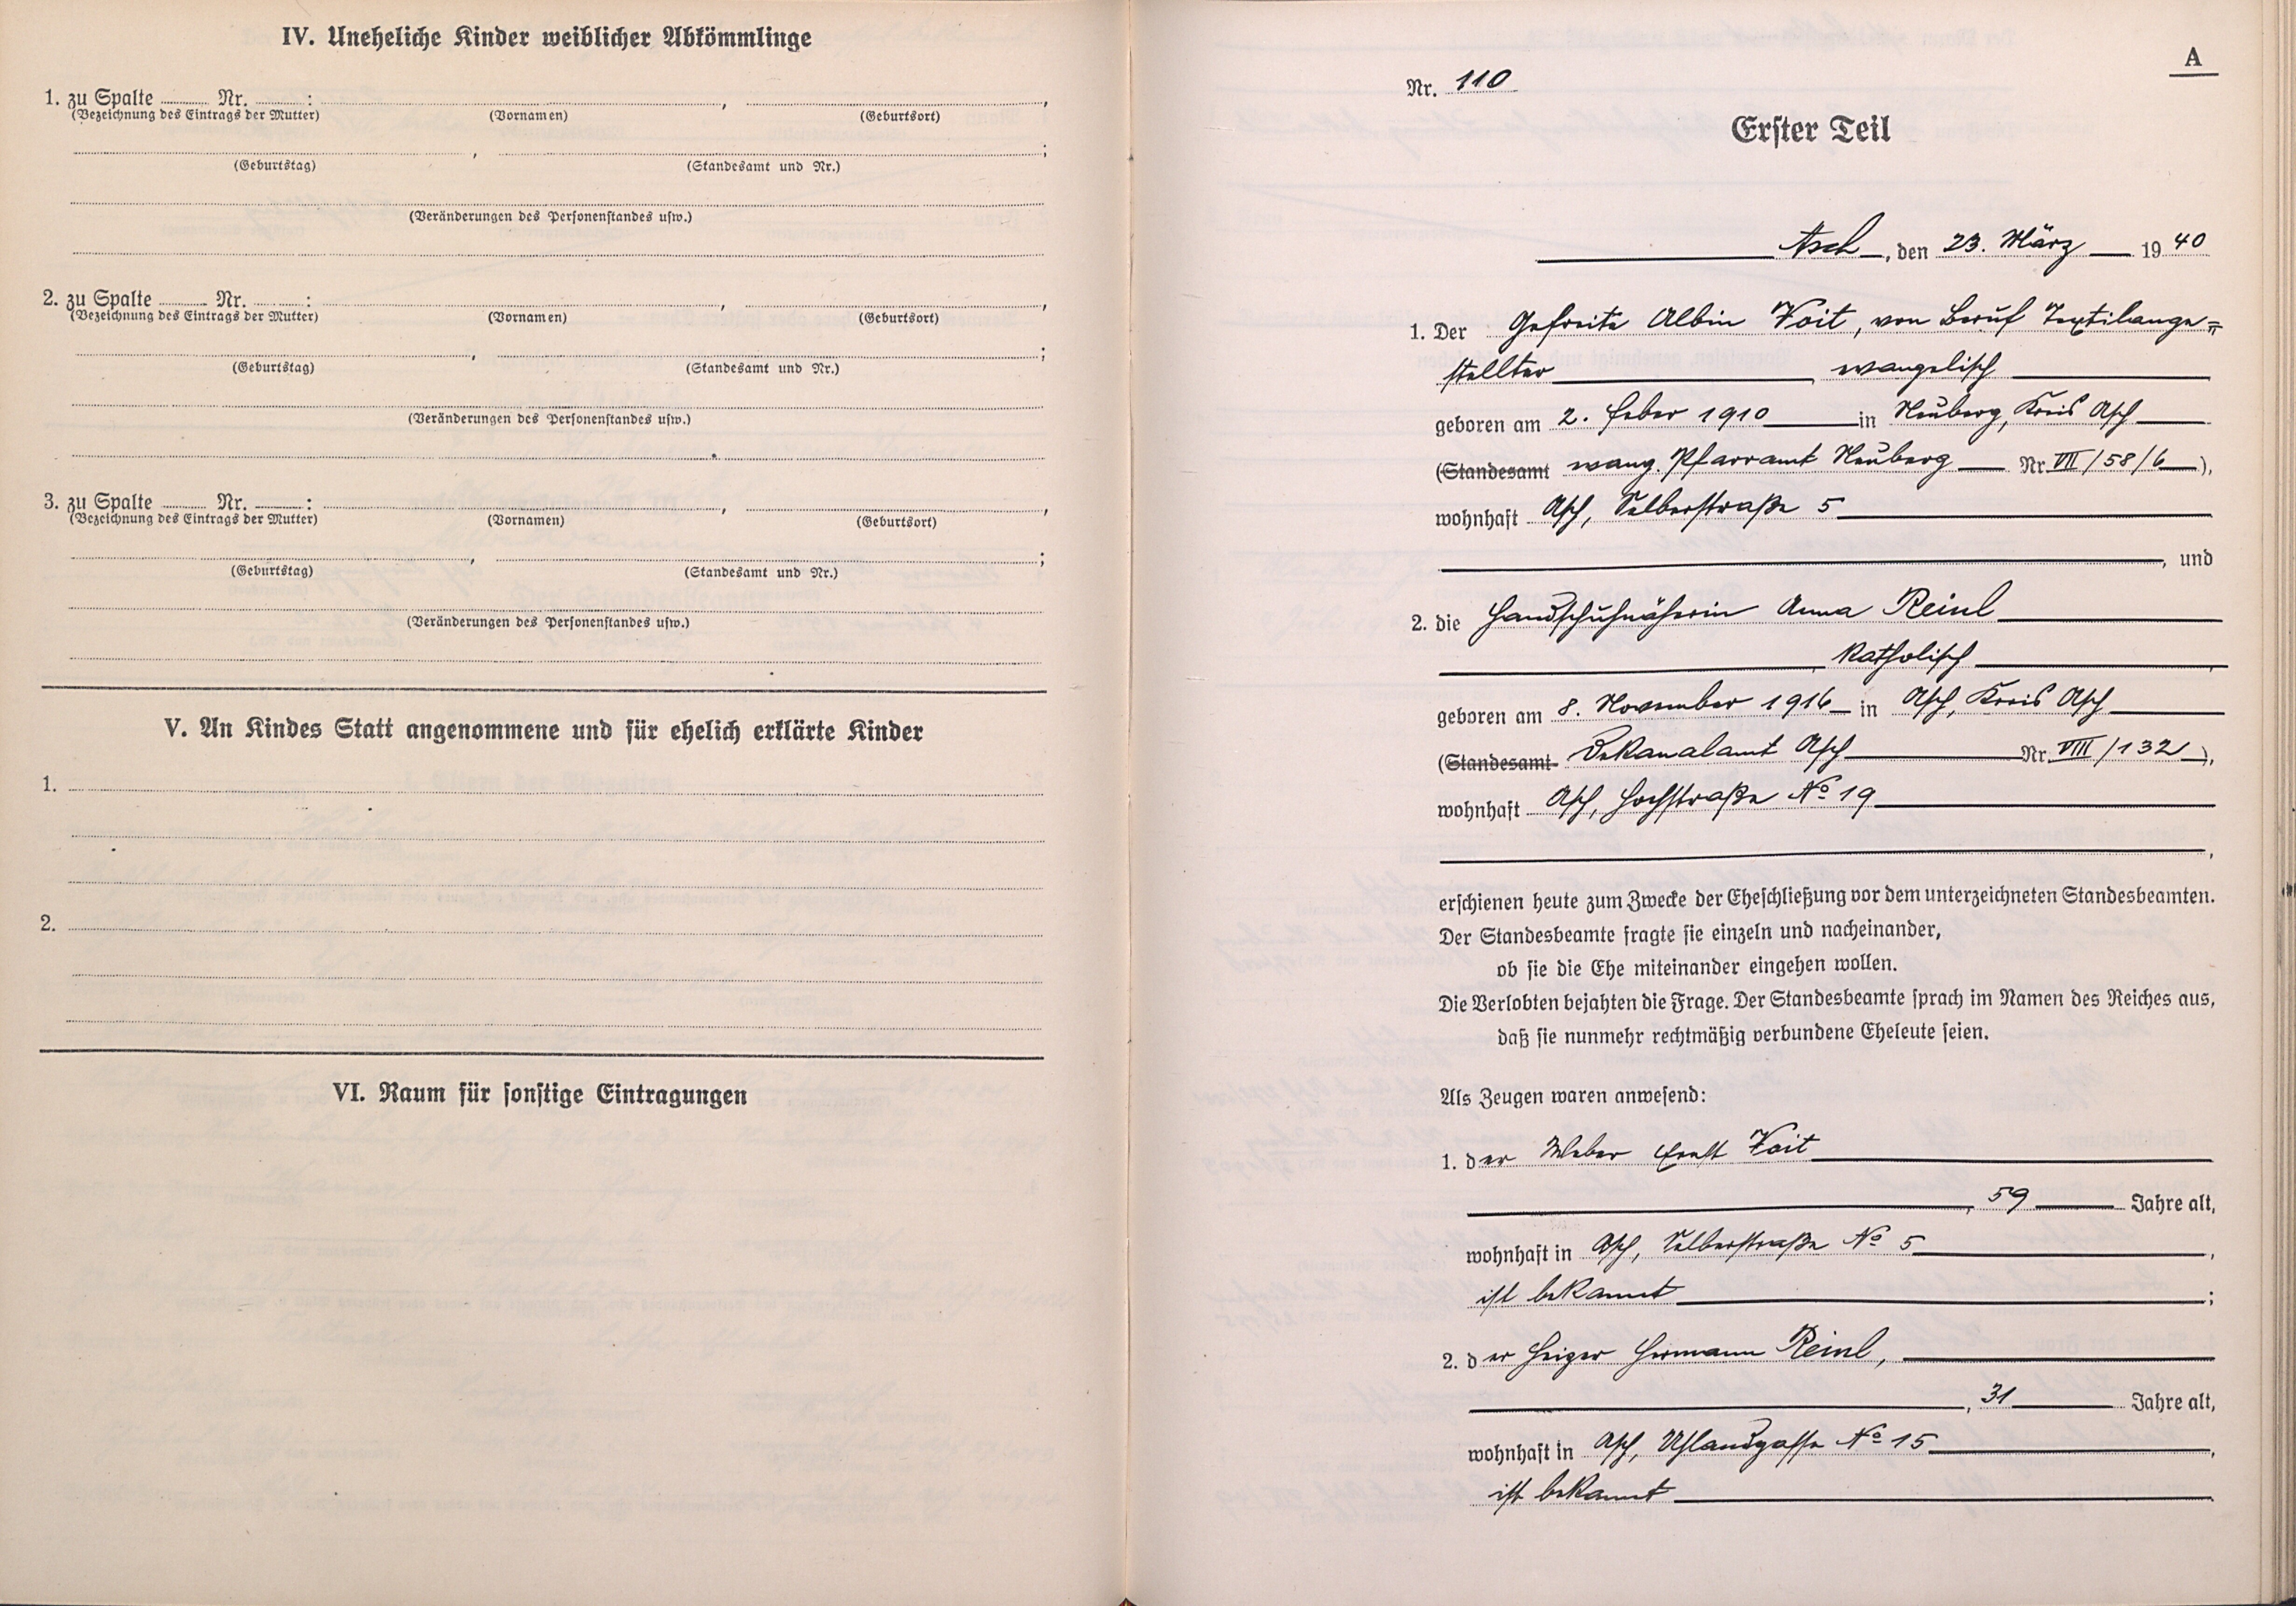 IV. Uneheliche Kinder weiblicher Abkömmlinge
1. zu Spalte ........ Nr. ........ : ........ , ........ ,
(Bezeichnung des Eintrags der Mutter) (Vornamen) (Geburtsort)
(Geburtstag) (Standesamt und Nr.)
(Veränderungen des Personenstandes usw.)
2. zu Spalte ........ Nr. ........ : ........ , ........ ,
(Bezeichnung des Eintrags der Mutter) (Vornamen) (Geburtsort)
(Geburtstag) (Standesamt und Nr.)
(Veränderungen des Personenstandes usw.)
3. zu Spalte ........ Nr. ........ : ........ , ........ ,
(Bezeichnung des Eintrags der Mutter) (Vornamen) (Geburtsort)
(Geburtstag) (Standesamt und Nr.)
(Veränderungen des Personenstandes usw.)
V. An Kindes Statt angenommene und für ehelich erklärte Kinder
1.
2.
VI. Raum für sonstige Eintragungen
A
Nr. 110
Erster Teil
Asch, den 23. März 1940
1. Der Gefreite Albin Voit, von Beruf Textilange=
stellter evangelisch
geboren am 2. Feber 1910 in Neuberg, Kreis Asch
(Standesamt evang. Pfarramt Neuberg Nr. VII/58/6),
wohnhaft Asch, Selberstraße 5
, und
2. die Handschuhnäherin Anna Reinl
katholisch
geboren am 8. November 1916 in Asch, Kreis Asch
(Standesamt Dekanalamt Asch Nr. VIII/132),
wohnhaft Asch, Hochstraße No 19
,
erschienen heute zum Zwecke der Eheschließung vor dem unterzeichneten Standesbeamten.
Der Standesbeamte fragte sie einzeln und nacheinander,
ob sie die Ehe miteinander eingehen wollen.
Die Verlobten bejahten die Frage. Der Standesbeamte sprach im Namen des Reiches aus,
daß sie nunmehr rechtmäßig verbundene Eheleute seien.
Als Zeugen waren anwesend:
1. der Weber Ernst Voit
, 59 Jahre alt,
wohnhaft in Asch, Selberstraße No 5,
ist bekannt ;
2. der Heizer Hermann Reinl,
, 31 Jahre alt,
wohnhaft in Asch, Uhlandgasse No 15,
ist bekannt